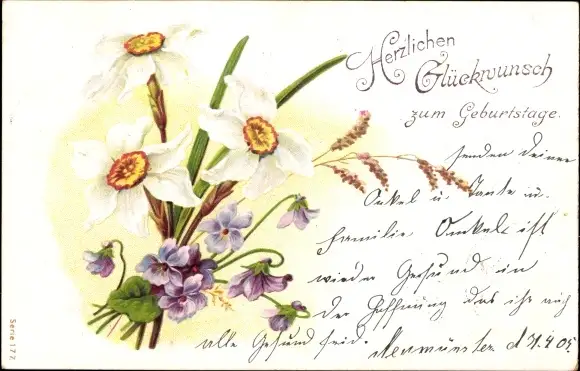 Herzlichen
Glückwunsch
zum Geburtstage.
senden deiner
Onkel u. Tante u.
Familie Onkel ist
wieder Gesund in
der Hoffnung das ihr auch
alle Gesund seid. Neumünster d 4 05.
Serie 177.